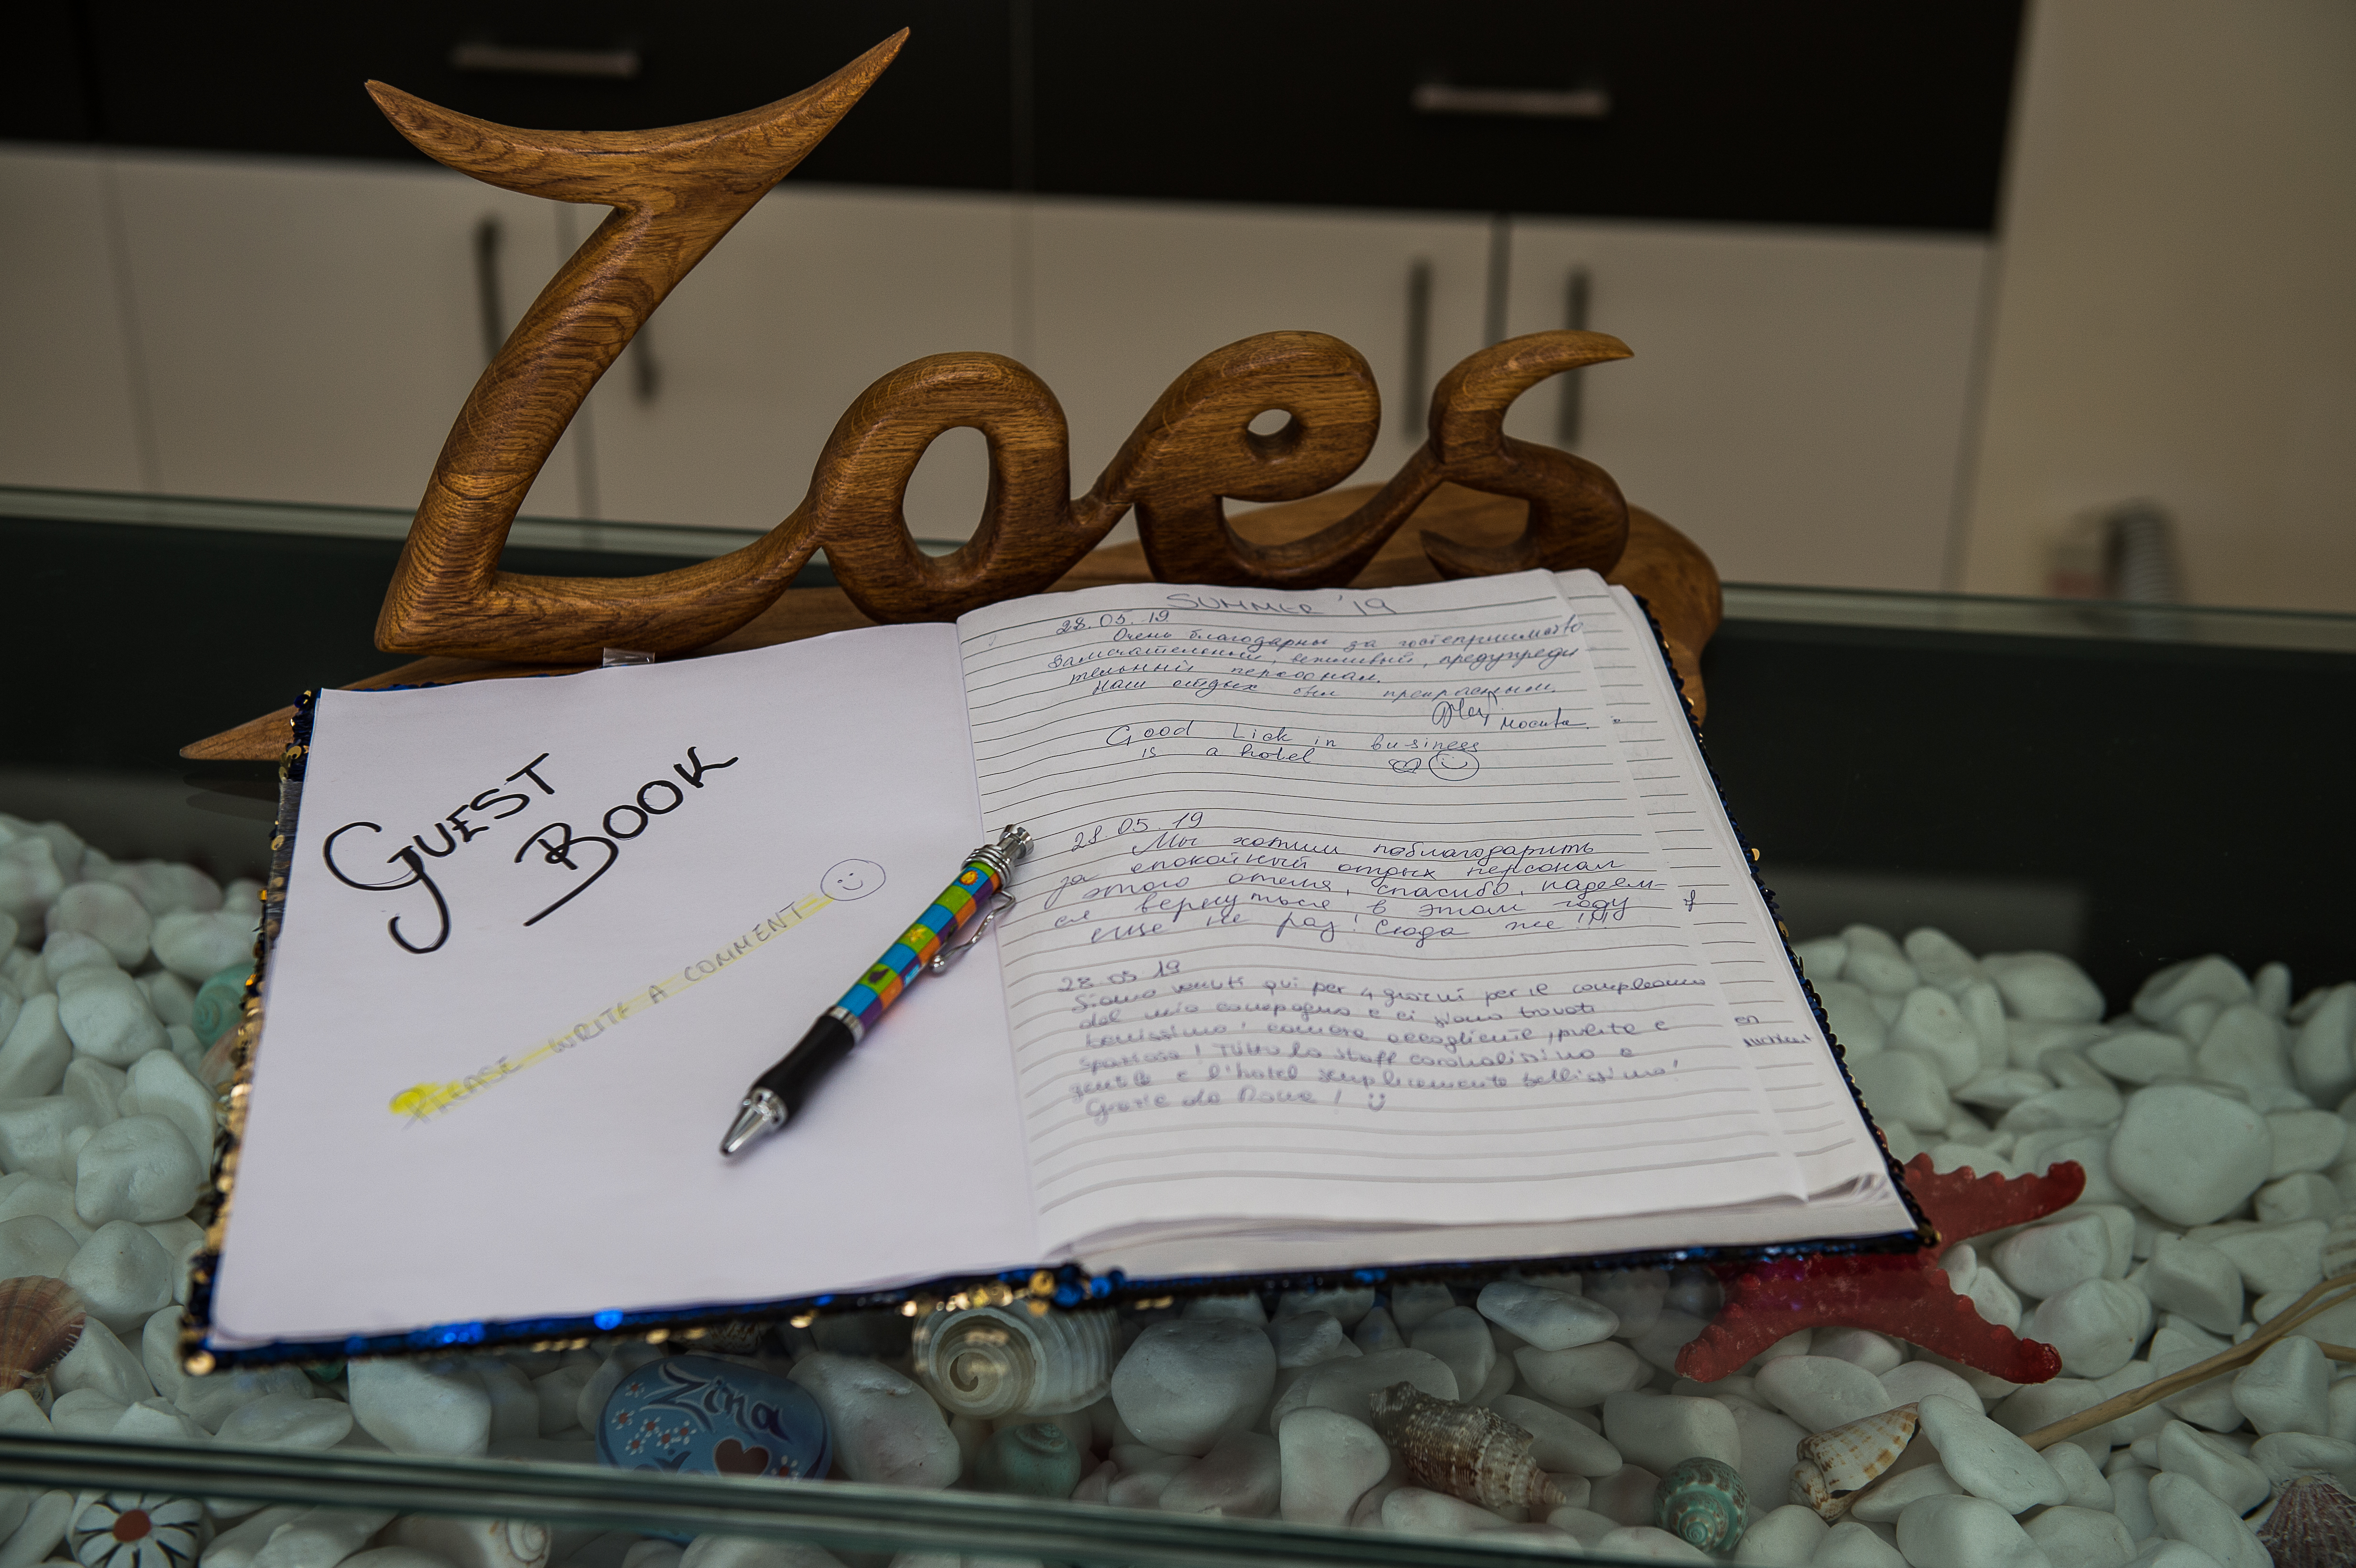 Zoes
GUEST
BOOK
PLEASE WRITE A COMMENT
SUMMER '19
28.05.19
Очень благодарны за гостеприимство
Замечательный, вежливый, предупреди
тельный персонал.
Наш отдых был прекрасным.
Москва
Good Lick in business
is a hotel
28.05.19
Мы хотим поблагодарить
за спокойный отдых персонал
этого отеля, спасибо, надеем-
ся вернуться в этом году
еще не раз! Сюда же!!!
28.05.19
Siamo venuti qui per 4 giorni per il compleanno
del mio compagno e ci siamo trovati
benissimo! camera accogliente, pulita e
spaziosa! Tutto lo staff cordialissimo e
gentile e l'hotel semplicemente bellissimo!
Grazie da Roma!
en
Zina